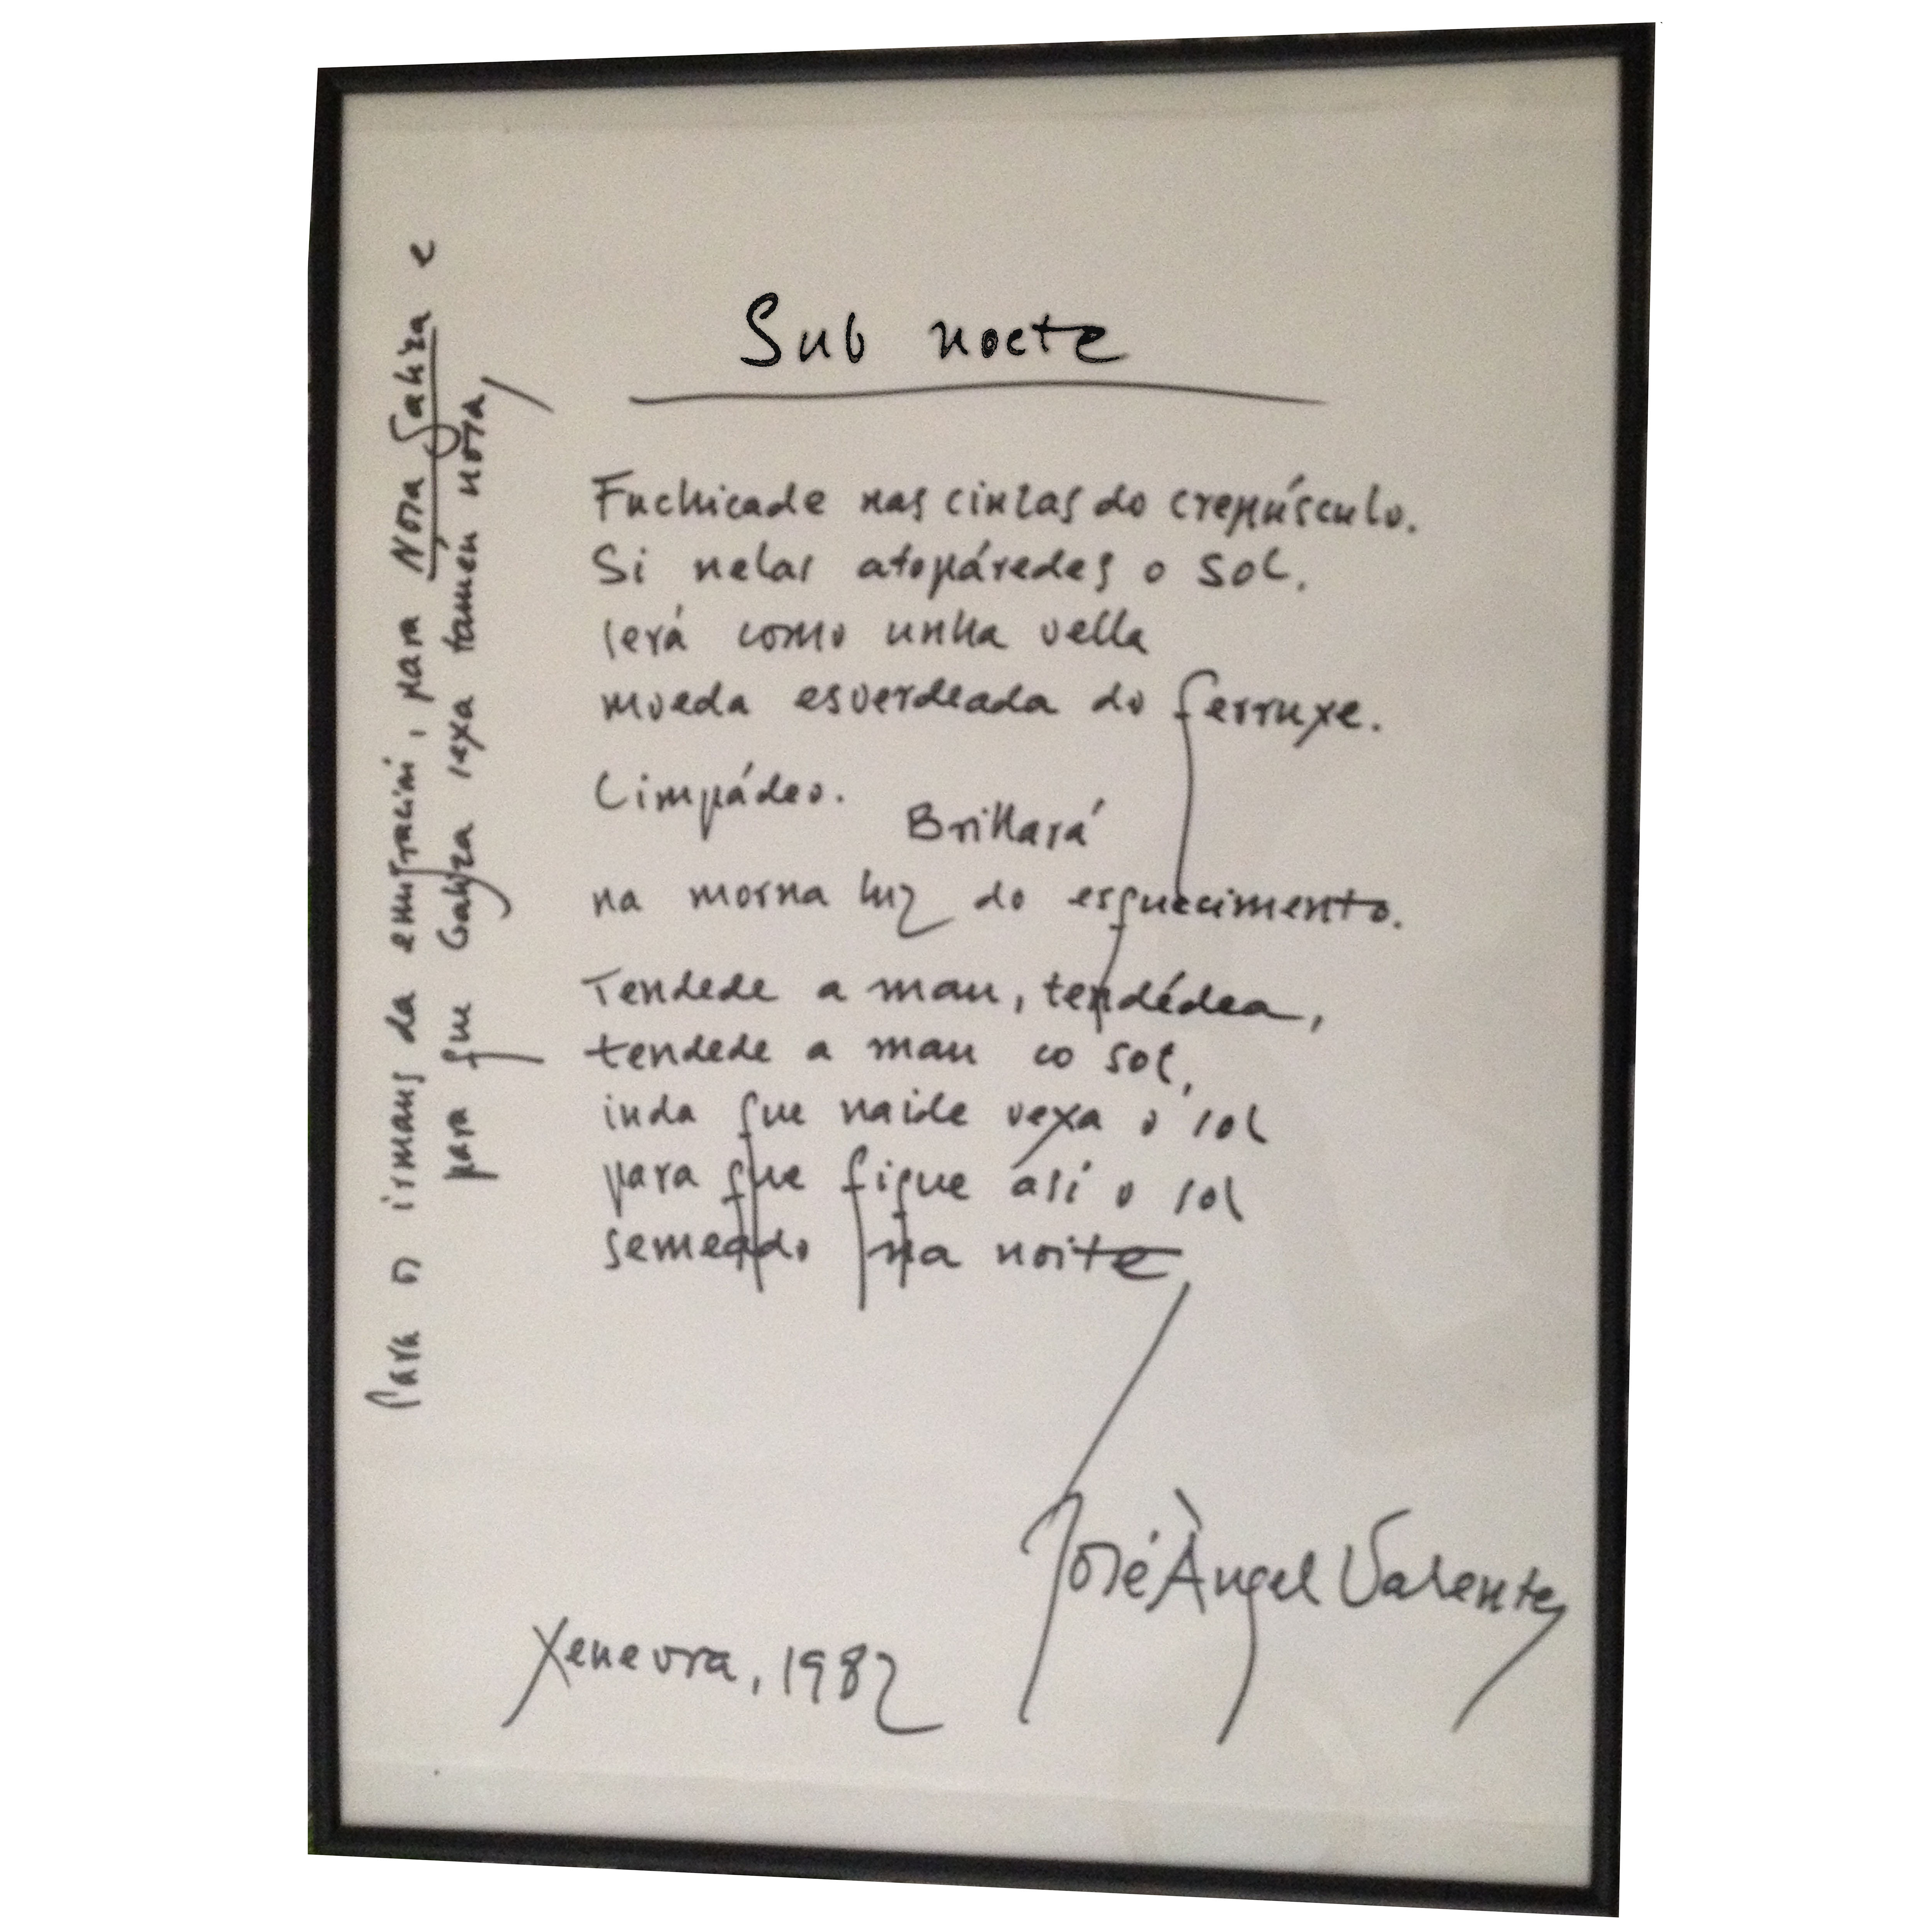 Sub nocte
Fuchicade nas cinzas do crepúsculo.
Si nelas atopáredes o sol.
será como unha vella
moeda esverdeada do ferruxe.
Limpádeo.
Brillará
na morna luz do esquecimento.
Tendede a man, tendédea,
tendede a man co sol,
inda que naide vexa o sol
para que fique así o sol
semeado na noite
José Ángel Valente
Xenevra, 1982
Para os irmans da emigración, para Nosa Galiza e
para que Galiza sexa tamén nosa,